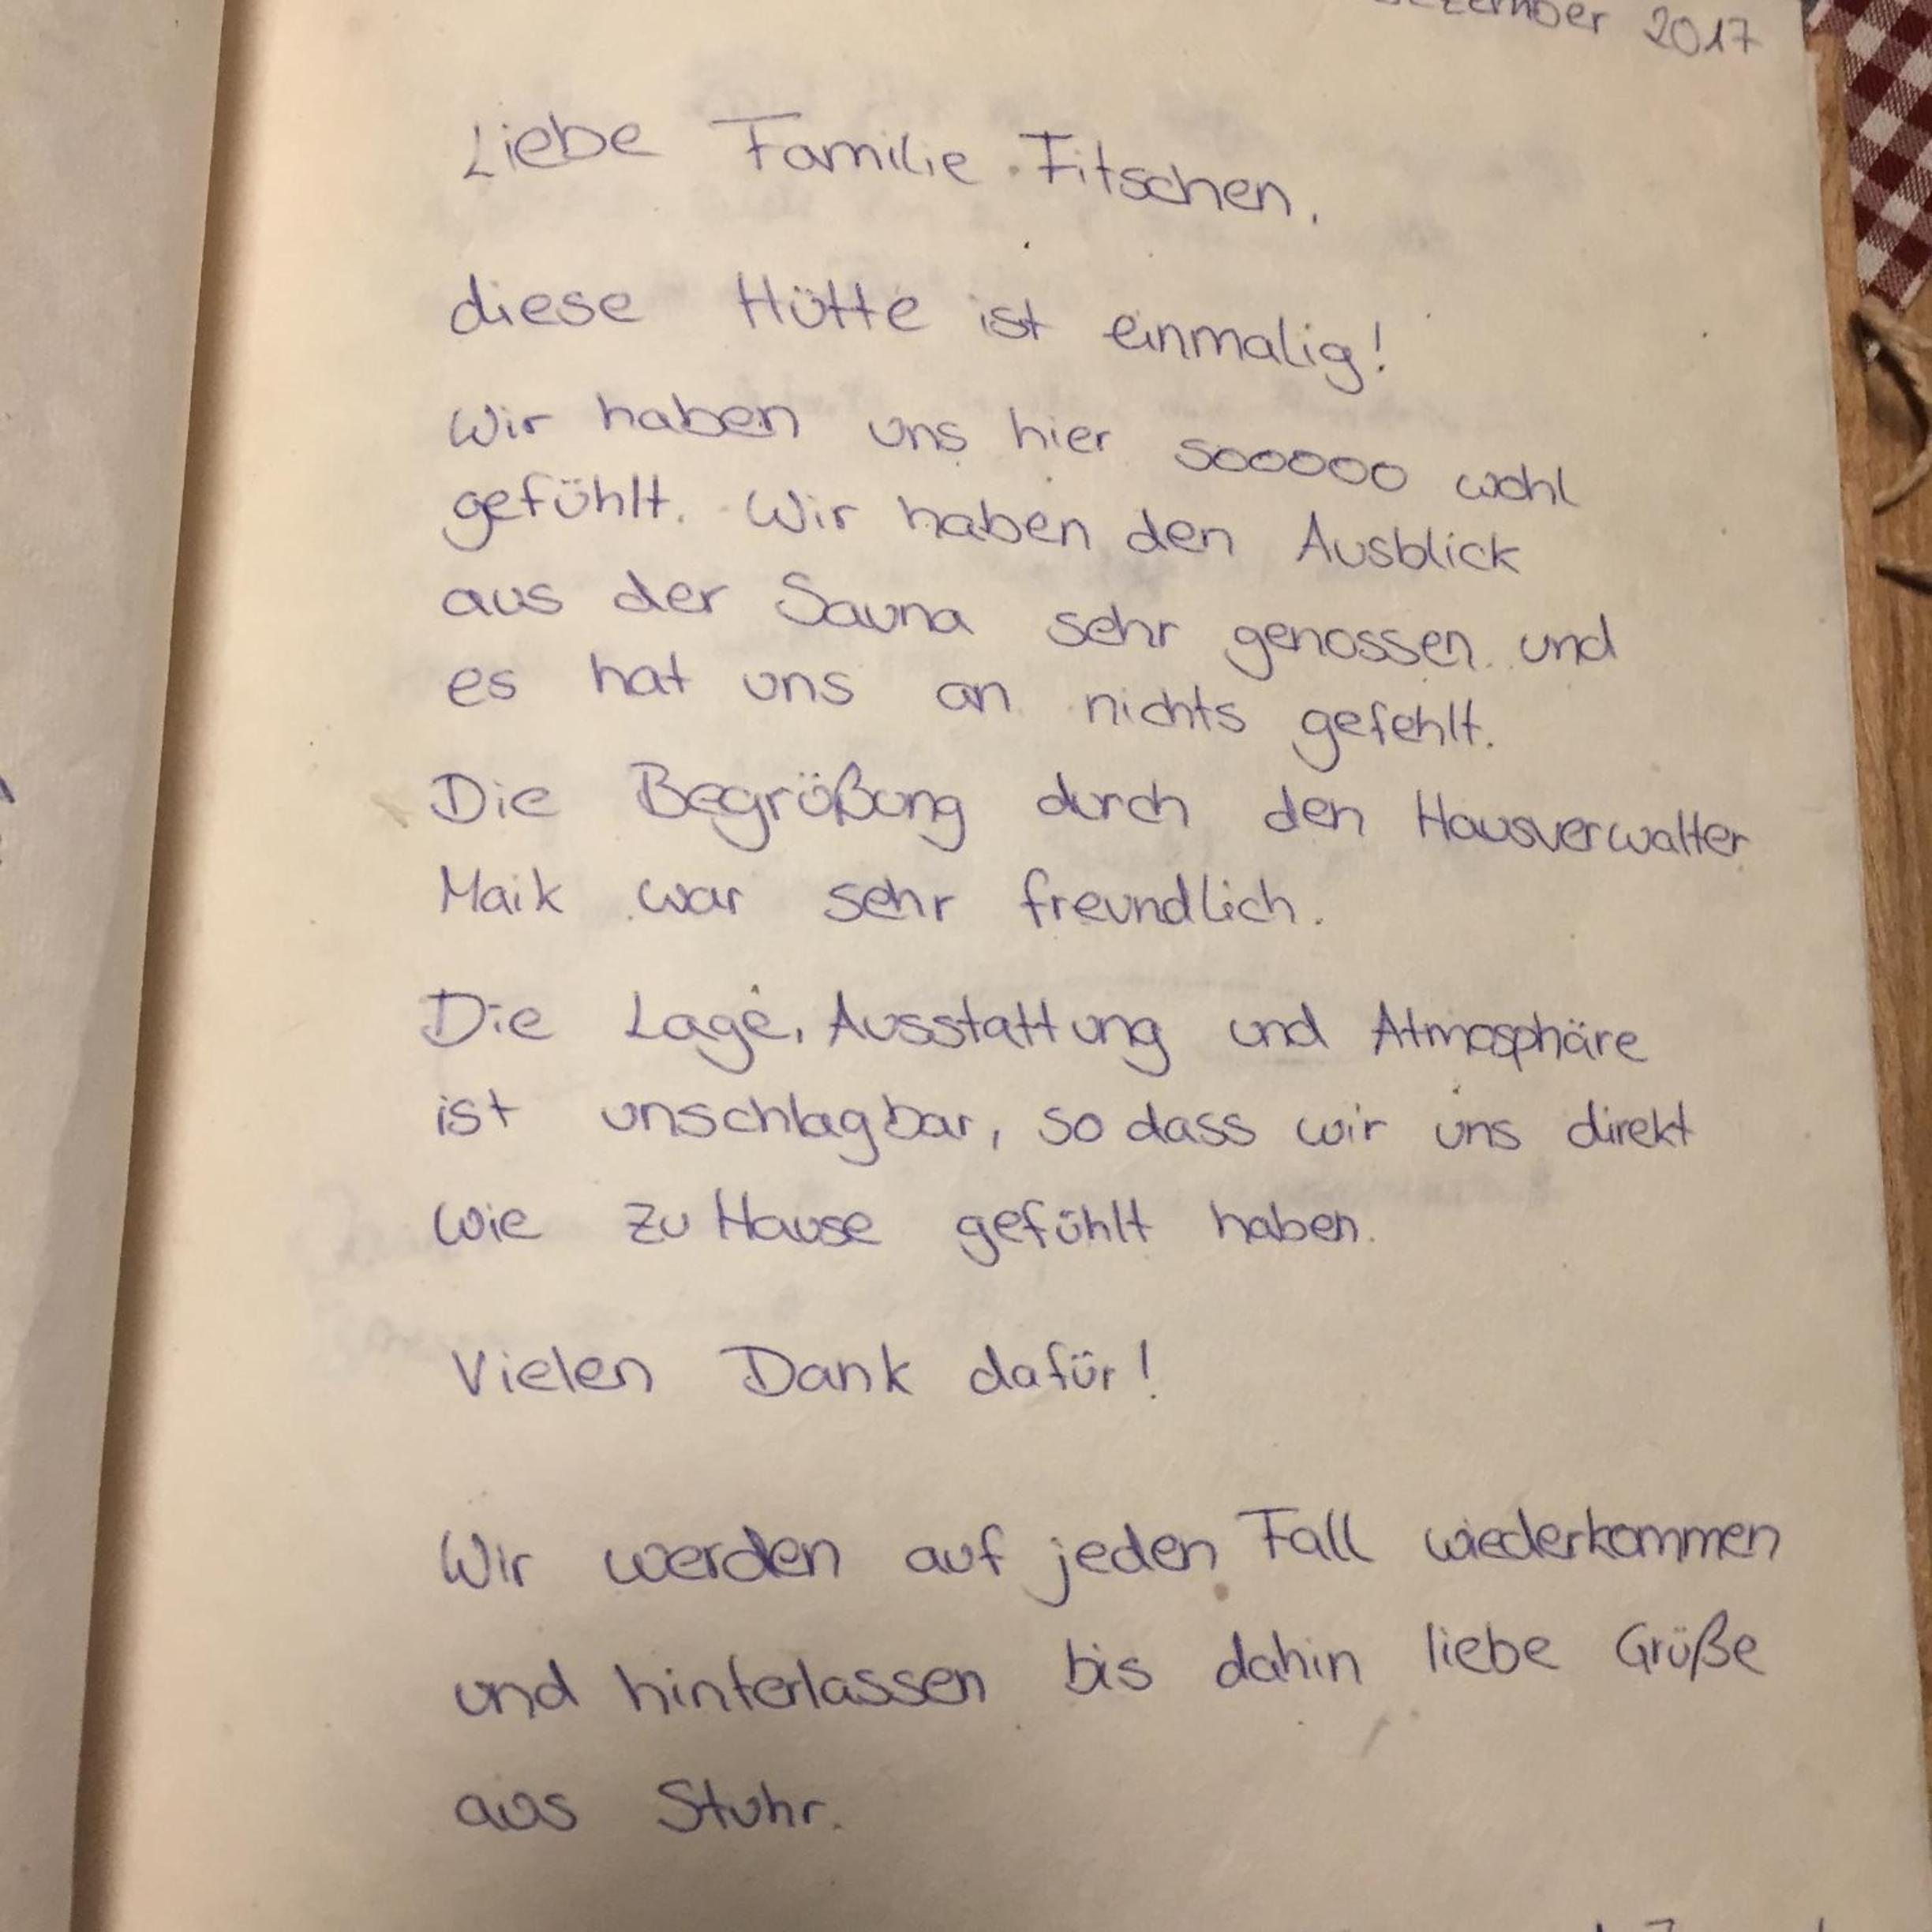 Dezember 2017
Liebe Familie Fitschen,
diese Hütte ist einmalig!
Wir haben uns hier sooooo wohl
gefühlt. Wir haben den Ausblick
aus der Sauna sehr genossen und
es hat uns an nichts gefehlt.
Die Begrüßung durch den Hausverwalter
Maik war sehr freundlich.
Die Lage, Ausstattung und Atmosphäre
ist unschlagbar, so dass wir uns direkt
wie zu Hause gefühlt haben.
Vielen Dank dafür!
Wir werden auf jeden Fall wiederkommen
und hinterlassen bis dahin liebe Grüße
aus Stuhr.